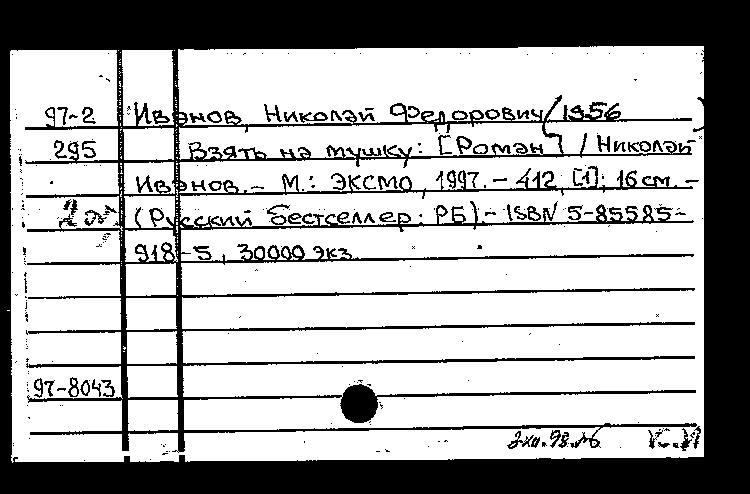 97-2 Иванов, Николай Федорович (1956
295 Взять на мушку: [Роман] / Николай
Иванов. – М.: ЭКСМО, 1997. – 412, [1]; 16 см. –
(Русский бестселлер: РБ). – ISBN 5-85585-
918-5, 30000 экз.
97-8043